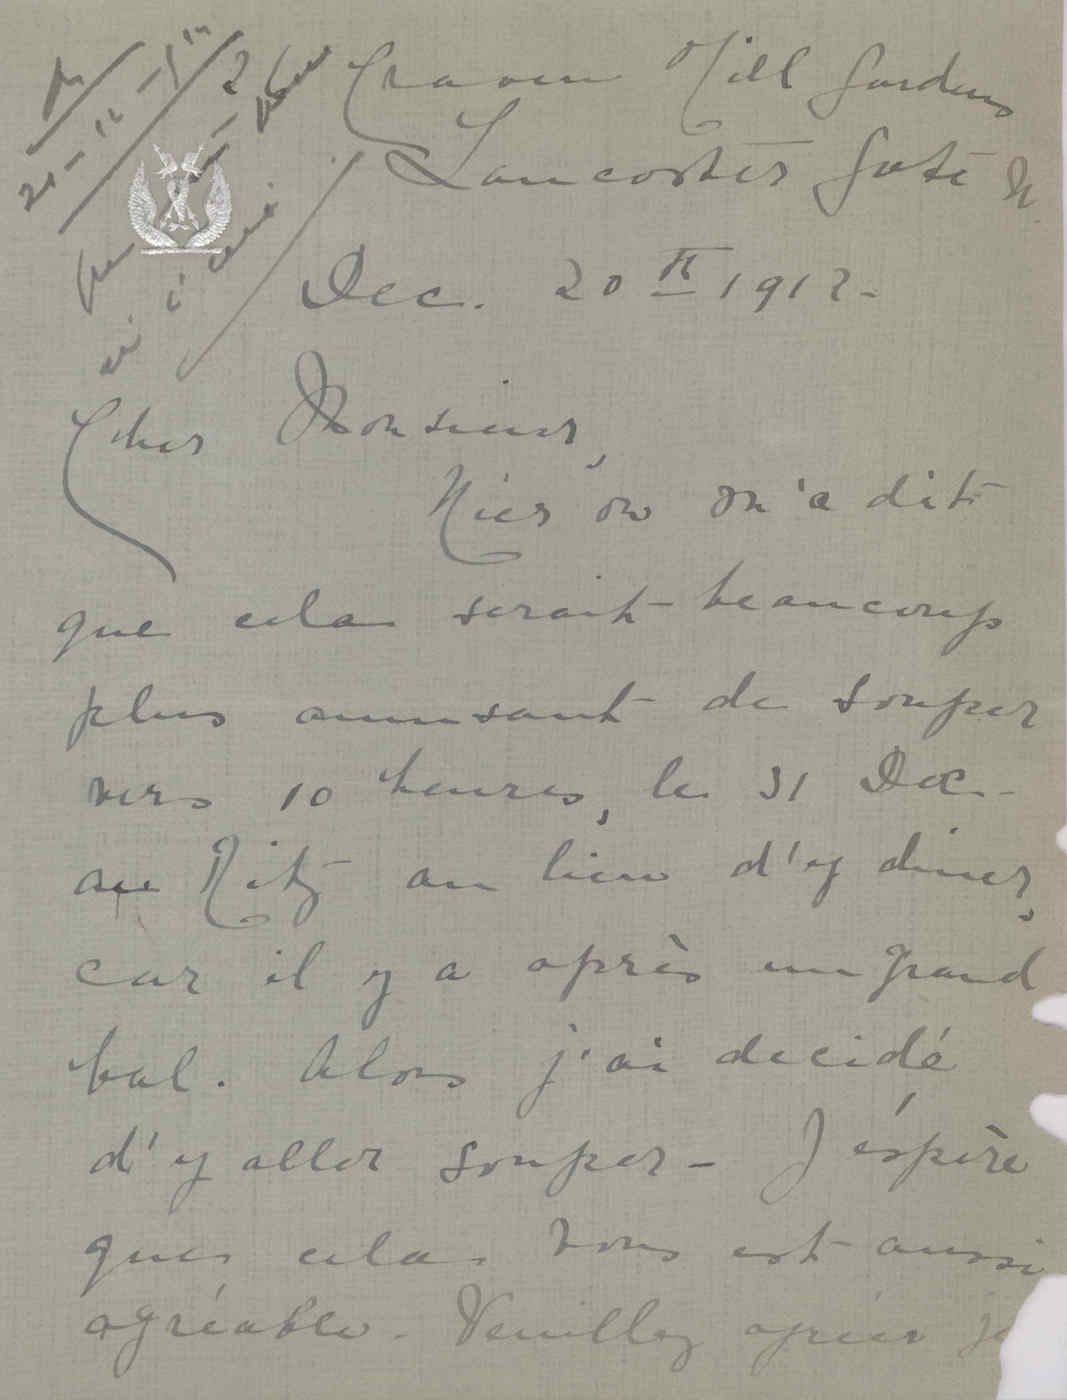 26 Craven Hill Gardens
Lancaster Gate W.
Dec. 20th 1912-
Cher Monsieur,
Hier on m'a dit
que cela serait beaucoup
plus amusant de souper
vers 10 heures, le 31 Dec-
au Ritz au lieu d'y diner,
car il y a après un grand
bal. Alors j'ai decidé
d'y aller souper- J'éspère
que cela vous est aussi
agréable. Veuillez agréer